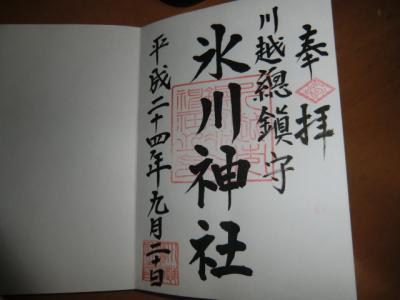 奉拝
川越總鎮守
氷川神社
平成二十四年九月二十日